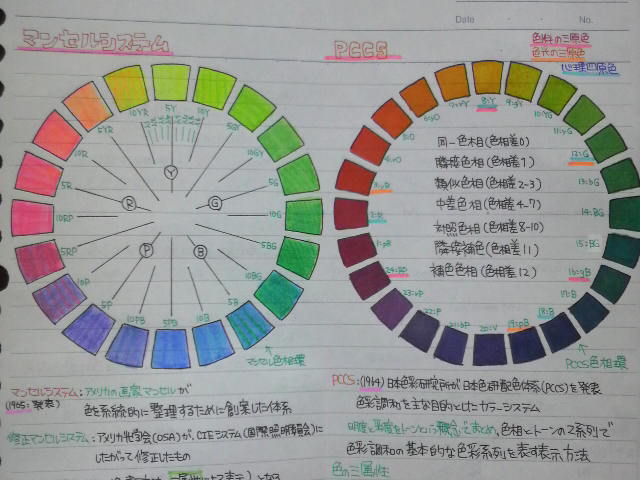 Date
No.
マンセルシステム
PCCS
色料の三原色
色光の三原色
心理四原色
10YR
5Y
10Y
5YR
5GY
10R
10GY
5R
5G
10RP
10G
5RP
5BG
10P
10BG
5P
5B
10PB
5PB
10B
Y
R
G
P
B
マンセル色相環
8:Y
10:YG
12:G
13:bG
14:BG
15:BG
16:gB
17:B
18:B
19:pB
20:V
21:bP
22:P
23:rP
24:RP
1:pR
2:R
3:yR
4:rO
5:O
6:yO
7:rY
9:gY
11:yG
同一色相(色相差0)
隣接色相(色相差1)
類似色相(色相差2-3)
中差色相(色相差4-7)
対照色相(色相差8-10)
隣接補色(色相差11)
補色色相(色相差12)
PCCS色相環
マンセルシステム:アメリカの画家マンセルが
(1905:発表)
色を系統的に整理するために創案した体系
修正マンセルシステム:アメリカ光学会(OSA)が、CIEシステム(国際照明委員会)に
したがって修正したもの
PCCS:(1964)日本色彩研究所が日本色研配色体系(PCCS)を発表
色彩調和を主な目的としたカラーシステム
明度と彩度をトーンという概念でまとめ、色相とトーンの2系列で
色彩調和の基本的な色彩系列を表す表示方法
色の三属性